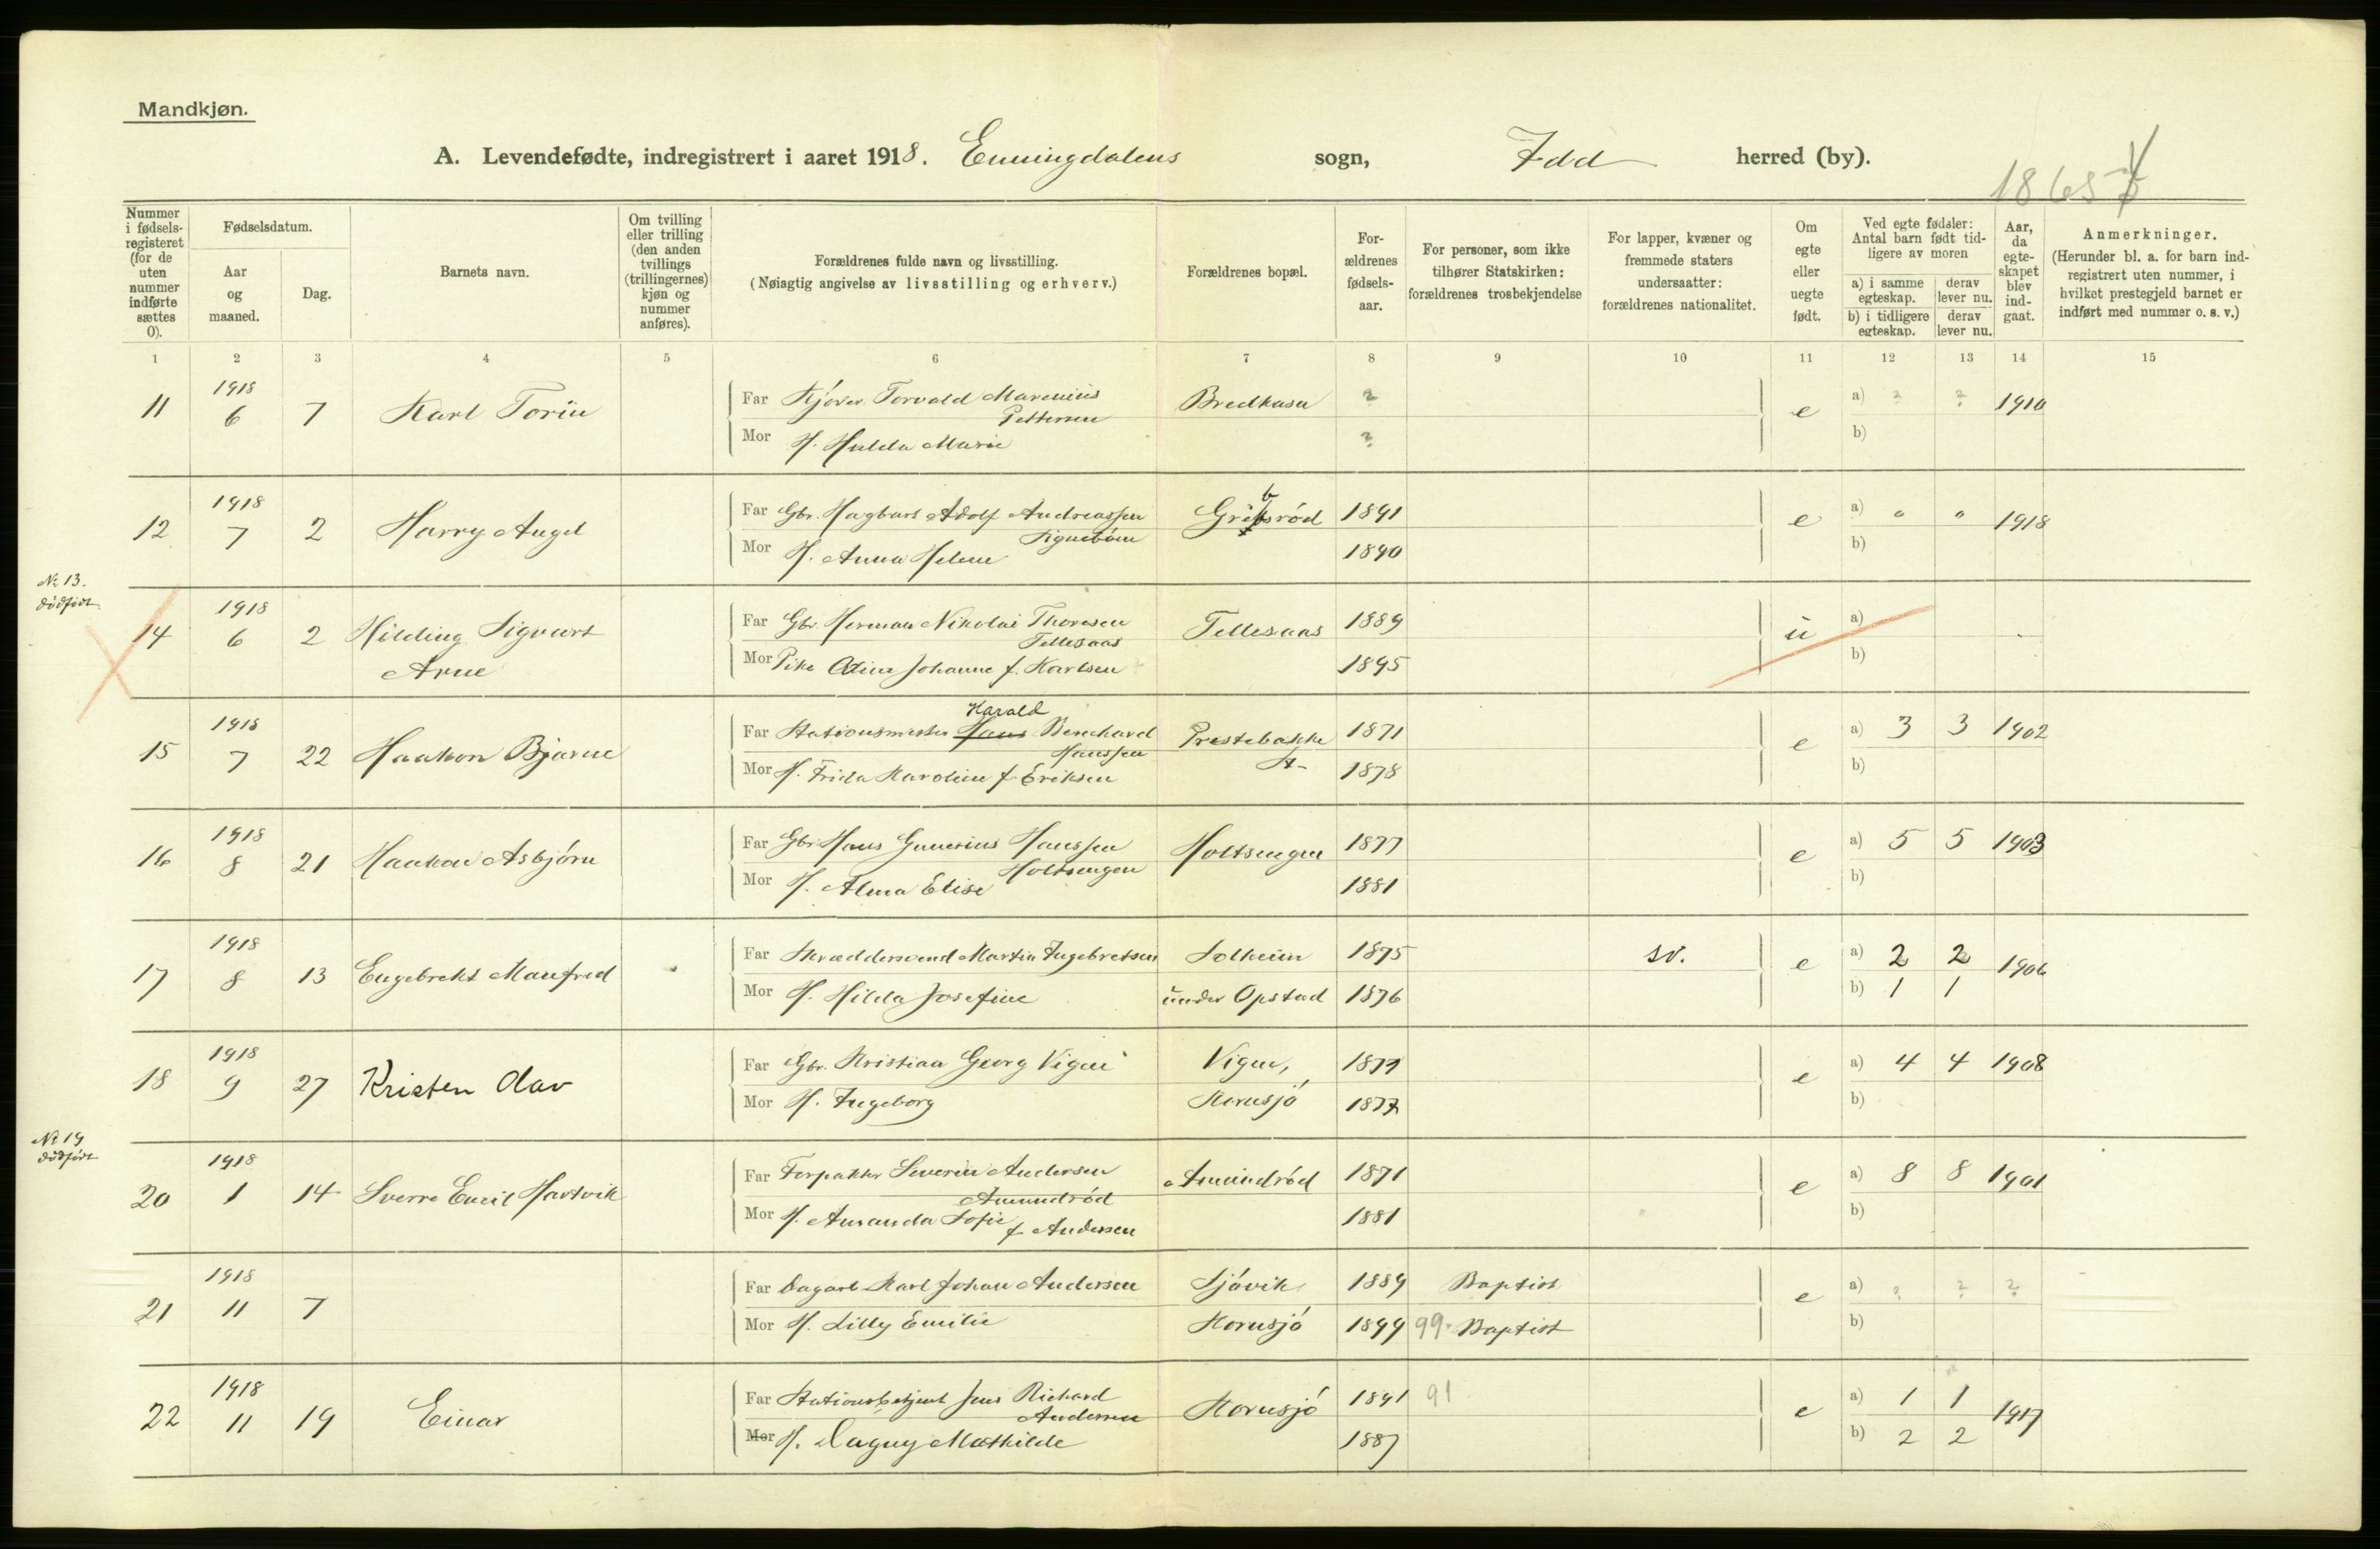 Mandkjøn.
A. Levendefødte, indregistrert i aaret 1918. Enningdalens sogn, Idd herred (by).
1865
Nummer i fødsels-registeret (for de uten nummer indførte sættes 0).
Fødselsdatum.
Aar og maaned.
Dag.
Barnets navn.
Om tvilling eller trilling (den anden tvillings (trillingernes) kjøn og nummer anføres).
Forældrenes fulde navn og livsstilling.
(Nøiagtig angivelse av livsstilling og erhverv.)
Forældrenes bopæl.
For-ældrenes fødsels-aar.
For personer, som ikke tilhører Statskirken: forældrenes trosbekjendelse
For lapper, kvæner og fremmede staters undersaatter: forældrenes nationalitet.
Om egte eller uegte født.
Ved egte fødsler: Antal barn født tid-ligere av moren
a) i samme egteskap. derav lever nu.
b) i tidligere egteskap. derav lever nu.
Aar, da egte-skapet blev ind-gaat.
Anmerkninger.
(Herunder bl. a. for barn ind-registrert uten nummer, i hvilket prestegjeld barnet er indført med nummer o. s. v.)
1 2 3 4 5 6 7 8 9 10 11 12 13 14 15
11 1918 6 7 Karl Torin Far Kjører Torvald Marenius Bredkasa ? e a) ? ? 1910
Pettersen
Mor H. Hulda Marie ? b)
12 1918 7 2 Harry Angel Far Gbr. Hagbart Adolf Andreassen Gribsrød 1891 e a) " " 1918
Signebøen
Mor H. Anna Helene 1890 b)
№ 13. dødfødt.
14 1918 6 2 Hilding Sigvart Far Gbr. Herman Nikolai Thoresen Tellesaas 1889 u a)
Arne Tellesaas
Mor Pike Odine Johanne f. Karlsen 1895 b)
15 1918 7 22 Haakon Bjarne Far Stationsmester Hans Harald Bernhard Prestebakke 1871 e a) 3 3 1902
Hanssen
Mor H. Frida Karoline f. Eriksen St. 1878 b)
16 1918 8 21 Haakon Asbjørn Far Gbr. Hans Gunerius Hanssen Holtsengen 1877 e a) 5 5 1903
Holtsengen
Mor H. Alma Elise 1881 b)
17 1918 8 13 Engebrekt Manfred Far Skræddersvend Martin Ingebretsen Solheim 1875 sv. e a) 2 2 1906
Mor H. Hilda Josefine under Opstad 1876 b) 1 1
18 1918 9 27 Kristen Olav Far Gbr. Kristian Georg Vigne Vigne, 1877 e a) 4 4 1908
Mor H. Ingeborg Kornsjø 1877 b)
№ 19 dødfødt
20 1918 1 14 Sverre Emil Hartvik Far Forpakter Severin Andersen Amundrød 1871 e a) 8 8 1901
Amundrød
Mor H. Amanda Sofie f. Andersen 1881 b)
21 1918 11 7 Far Dagarb. Karl Johan Andersen Sjøvik 1889 Baptist e a) ? ? ?
Mor H. Lilly Emilie Kornsjø 1899 99. Baptist b)
22 1918 11 19 Einar Far Stationsbetjent Jens Richard Kornsjø 1891 91 e a) 1 1 1917
Andersen
Mor H. Dagny Mathilde 1887 b) 2 2